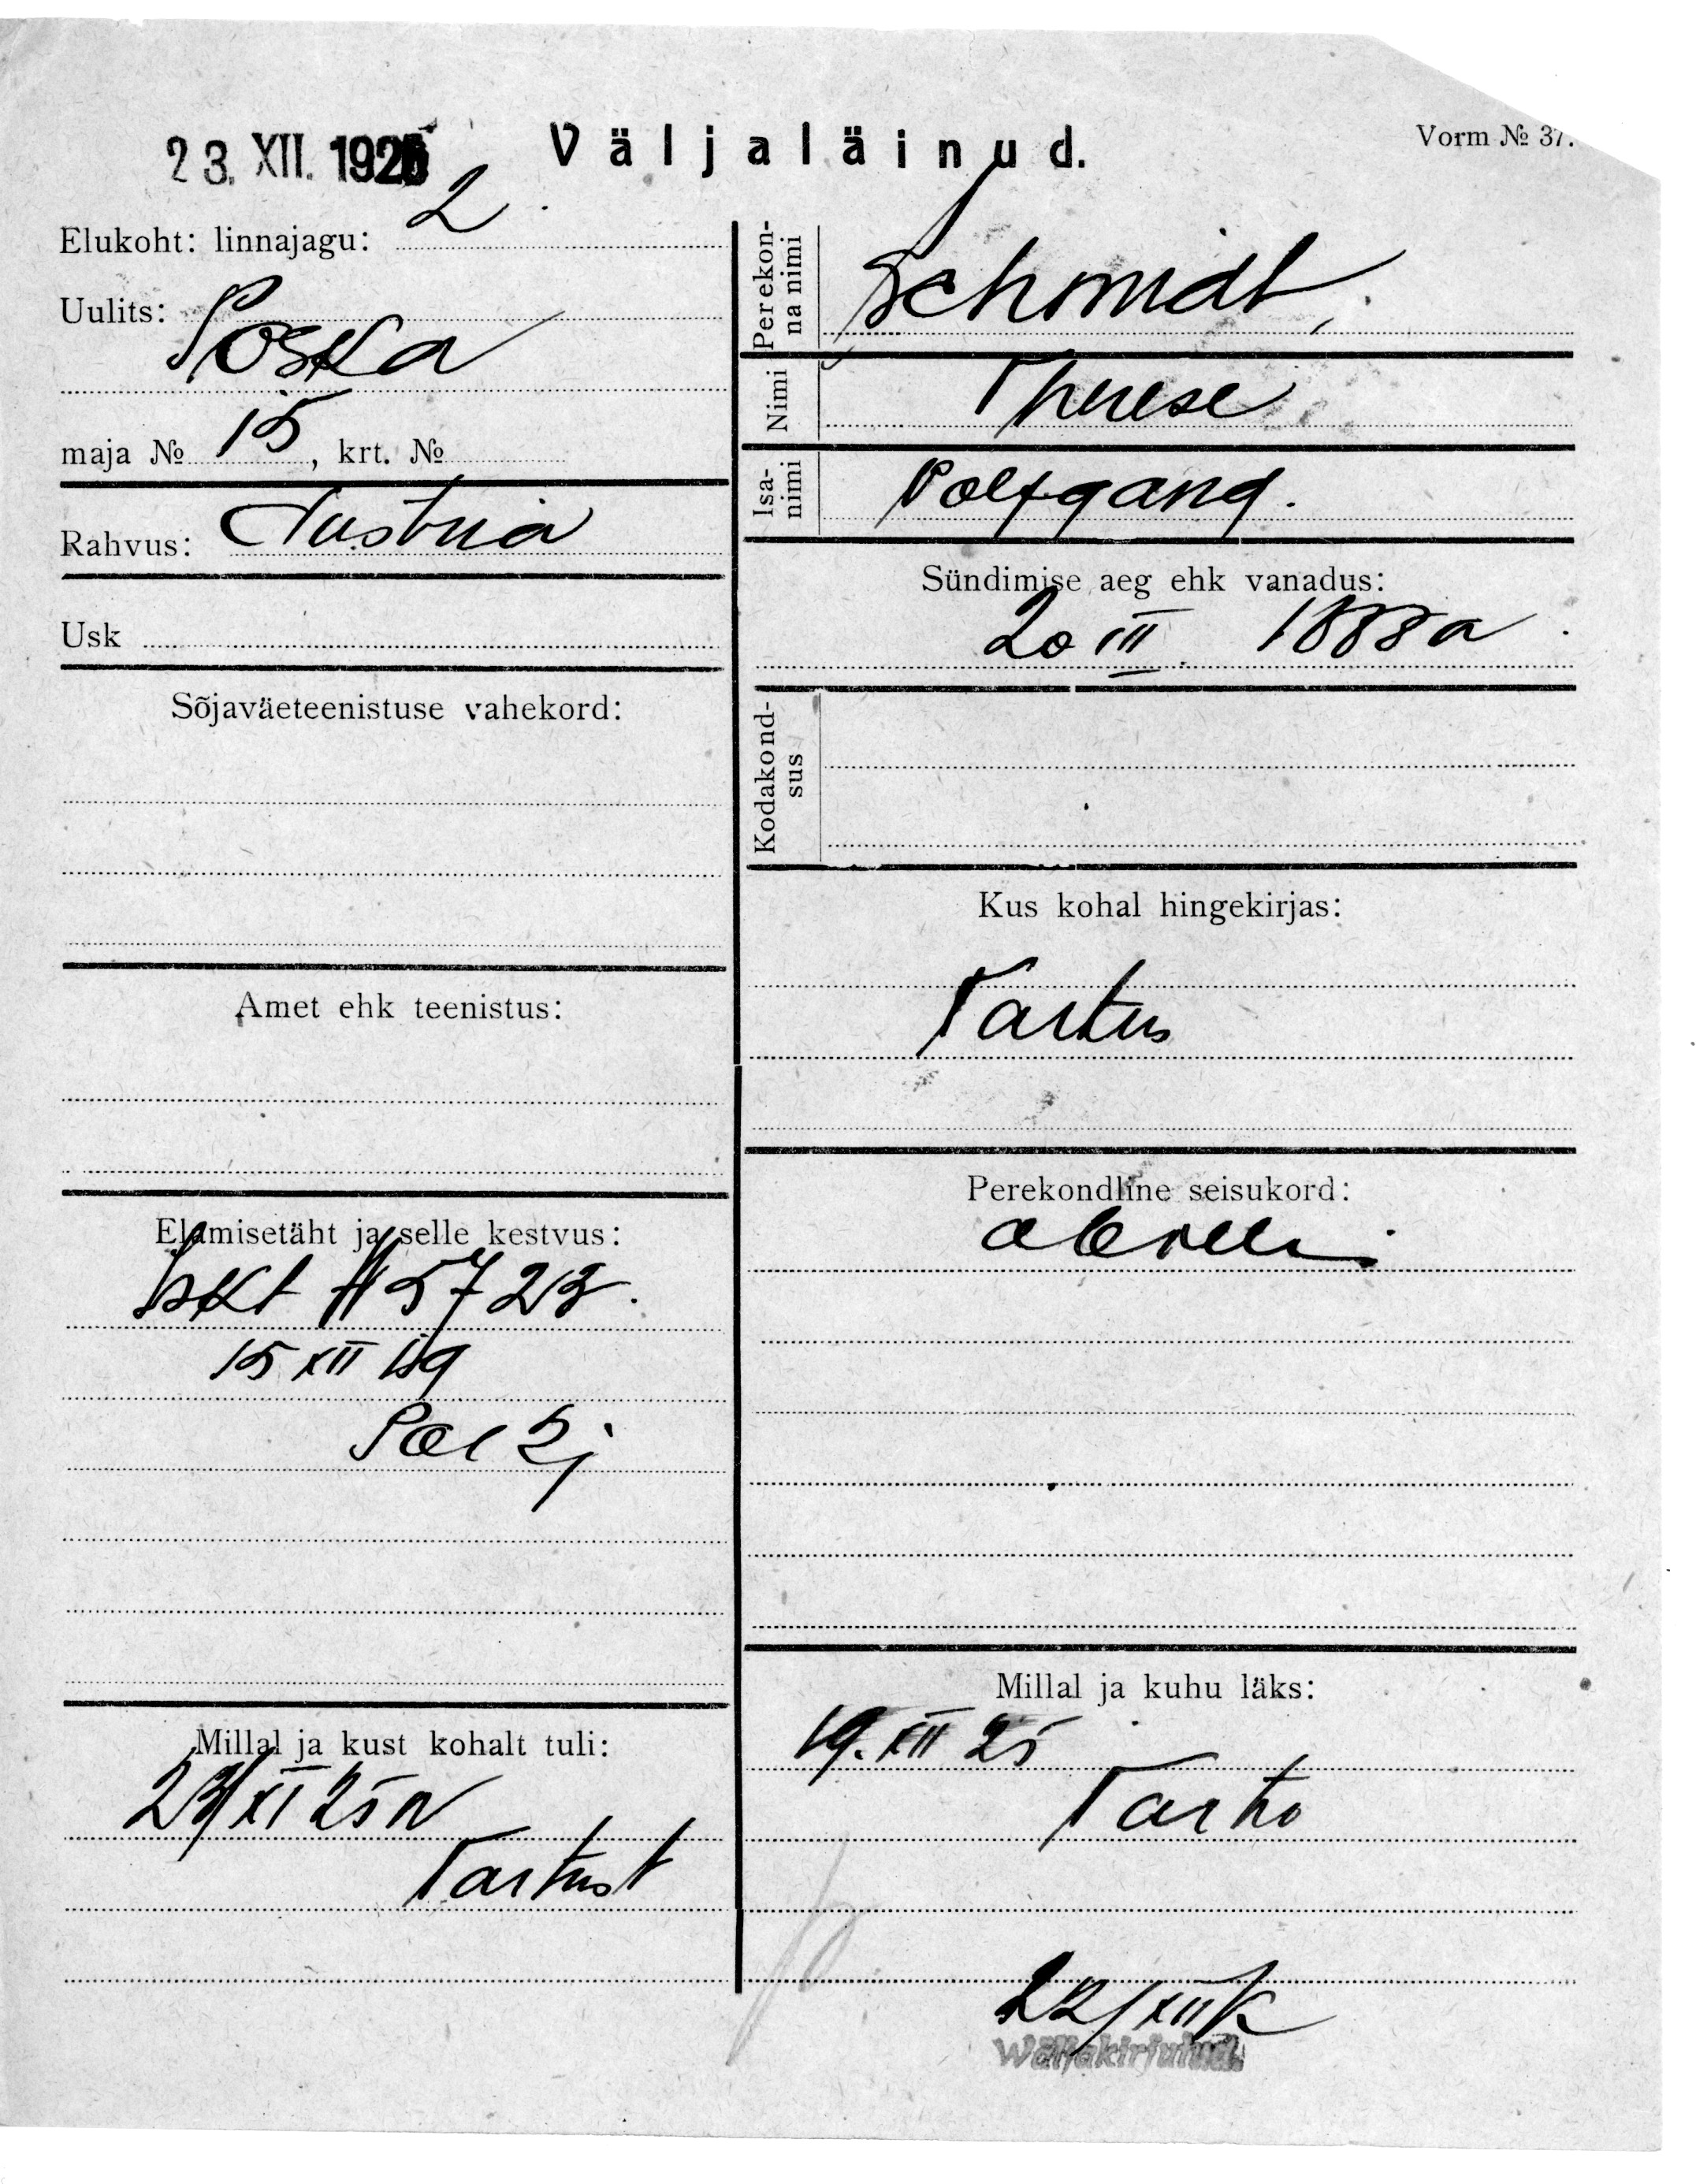 23. XII. 1925
Väljaläinud.
Vorm № 37.
Elukoht: linnajagu: 2
Uulits: Poska
maja № 15, krt. №
Rahvus: Austria
Usk
Sõjaväeteenistuse vahekord:
Amet ehk teenistus:
Elamisetäht ja selle kestvus:
Iskt № 5723.
15 XII 19
Pol 2j
Millal ja kust kohalt tuli:
23/XI 25 a
Tartust
Perekonna nimi Schmidt,
Nimi Therese
Isanimi Volfgang.
Sündimise aeg ehk vanadus:
20 III 1888 a
Kodakondsus
Kus kohal hingekirjas:
Tartus
Perekondline seisukord:
abielus
Millal ja kuhu läks:
19. XII 25
Tartu
22/XII
Wäljakirjutud.